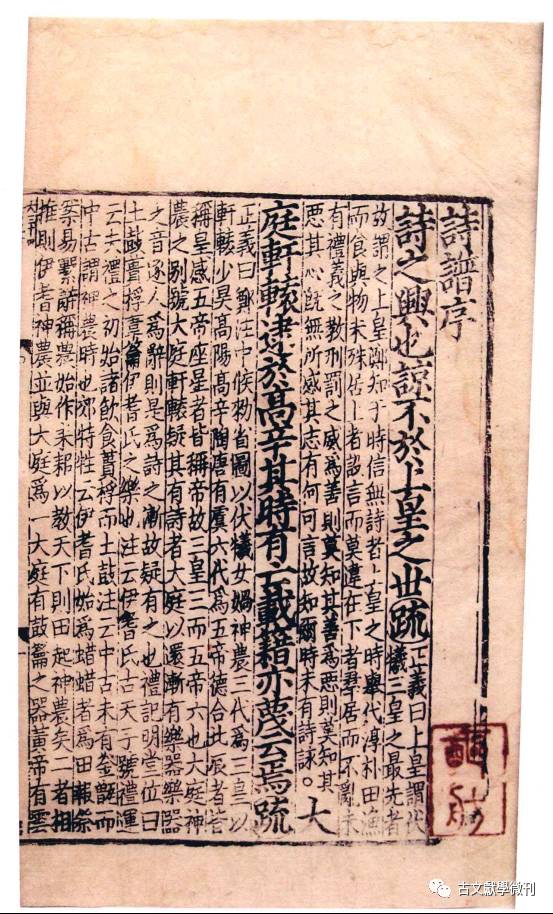 詩譜序
詩之興也諒不於上皇之世疏 正義曰上皇謂伏
犧三皇之最先者
故謂之上皇鄭知于時信無詩者上皇之時舉代淳朴田漁
而食與物未殊居上者設言而莫違在下者羣居而不亂未
有禮義之教刑罰之威為善則莫知其善為惡則莫知其
惡其心既無所感其志有何可言故知爾時未有詩詠。大
庭軒轅逮於高辛其時有亡載籍亦蔑云焉疏
正義曰鄭注中候勑省圖以伏犧女媧神農三代為三皇以
軒轅少昊高陽高辛陶唐有虞六代為五帝德合北辰者皆
稱皇感五帝座星者皆稱帝故三皇三而五帝六也大庭神
農之別號大庭軒轅疑其有詩者大庭以還漸有樂器樂器
之音逐人為辭則是為詩之漸故疑有之也禮記明堂位曰
土鼓蕢桴葦籥伊耆氏之樂也注云伊耆氏古天子號禮運
云夫禮之初始諸飲食蕢桴而土鼓注云中古未有釜甑而
中古謂神農時也郊特牲云伊耆氏始為蜡蜡者為田報祭
案易繫辭稱農始作耒耜以教天下則田起神農矣二者相
推則伊耆神農並與大庭為一大庭有鼓籥之器黃帝有雲
古文獻學微刊